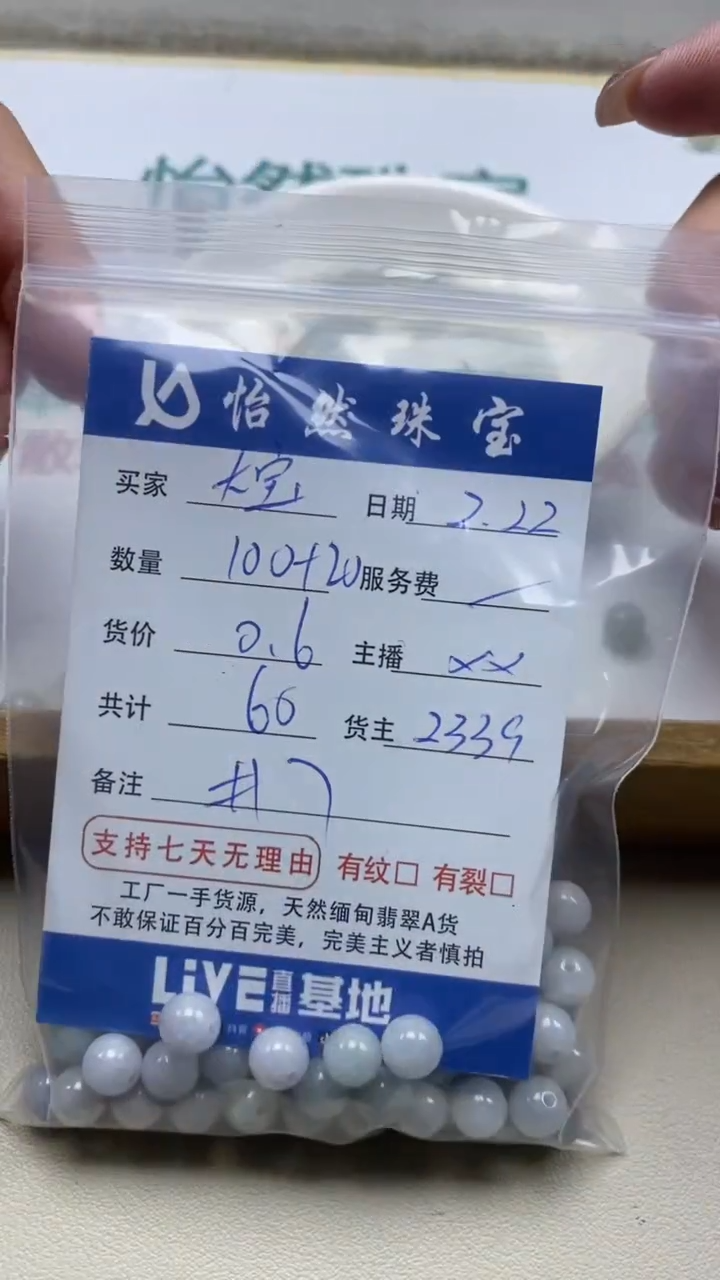 怡然珠宝
怡然珠宝
买家 大宝 日期 2.22
数量 100+20 服务费 —
货价 0.6 主播 xx
共计 60 货主 2339
备注 #7
支持七天无理由 有纹□ 有裂□
工厂一手货源，天然缅甸翡翠A货
不敢保证百分百完美，完美主义者慎拍
LiVE直播基地